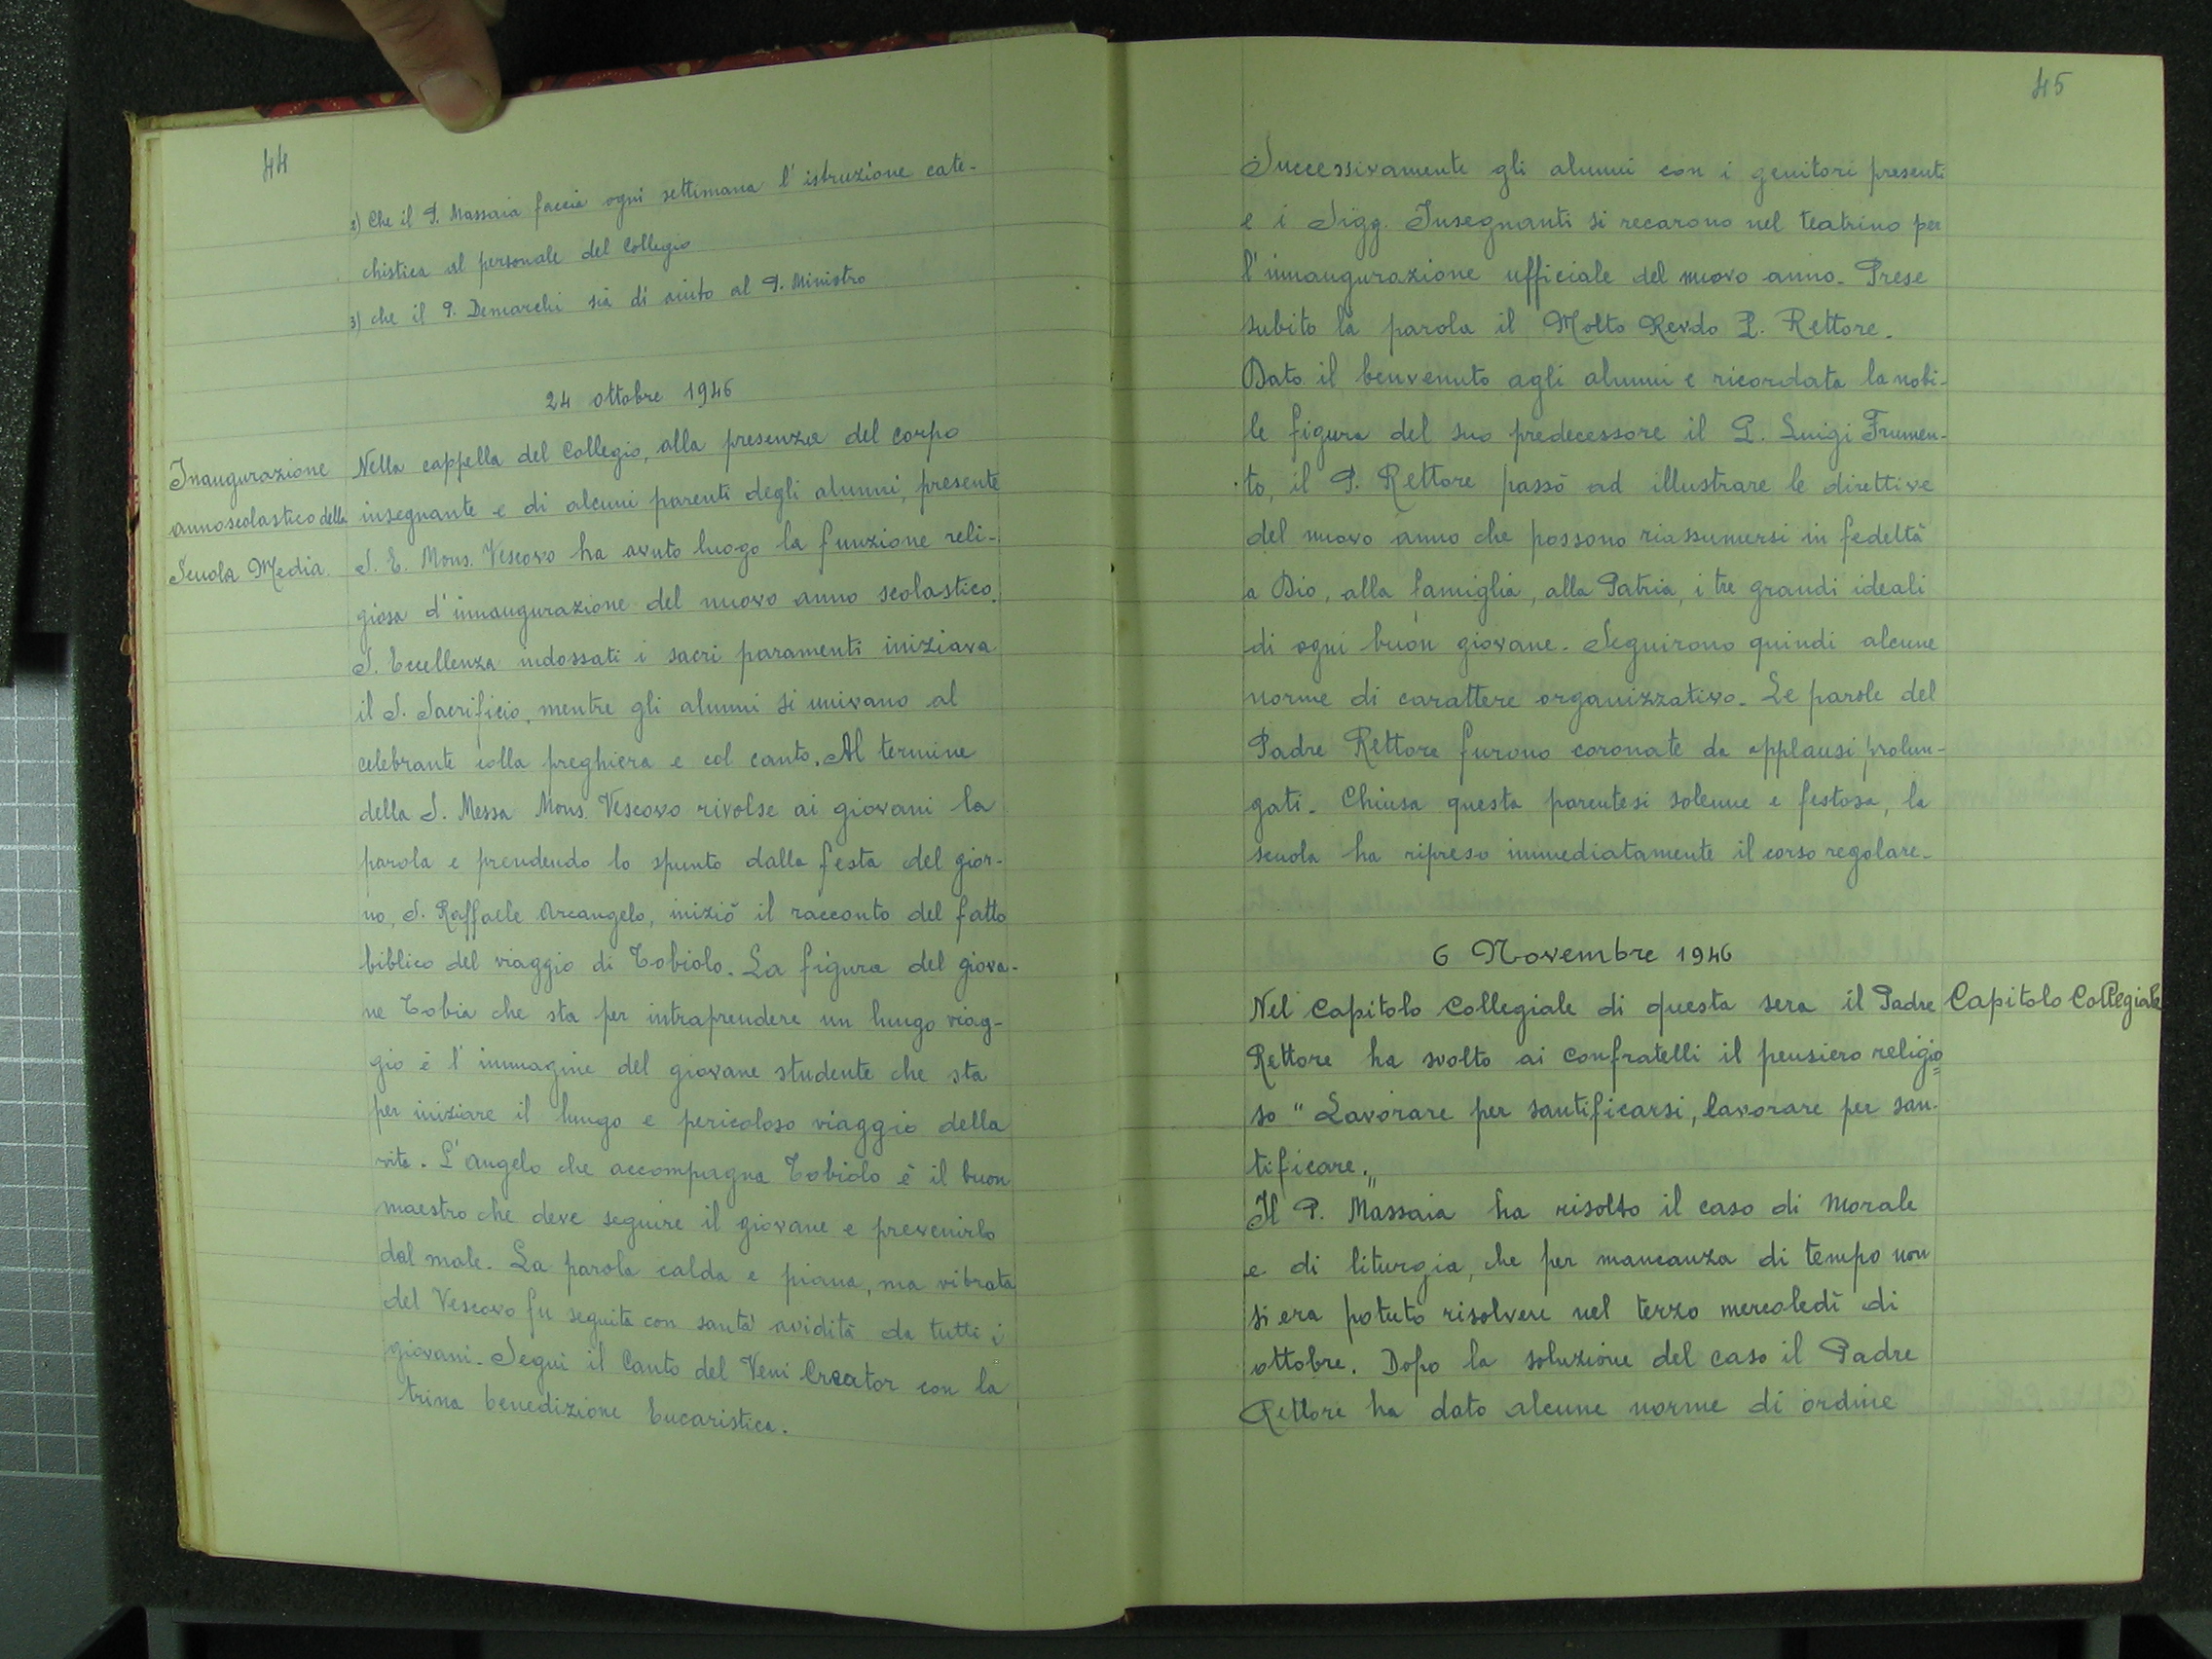 44
2) Che il P. Massaia faccia ogni settimana l'istruzione cate-
chistica al personale del Collegio
3) che il P. Demarchi sia di aiuto al P. Ministro
24 ottobre 1946
Inaugurazione
anno scolastico della
Scuola Media.
Nella cappella del Collegio, alla presenza del corpo
insegnante e di alcuni parenti degli alunni, presente
S. E. Mons. Vescovo ha avuto luogo la funzione reli-
giosa d'innaugurazione del nuovo anno scolastico.
S. Eccellenza indossati i sacri paramenti iniziava
il S. Sacrificio, mentre gli alunni si univano al
celebrante colla preghiera e col canto. Al termine
della S. Messa Mons. Vescovo rivolse ai giovani la
parola e prendendo lo spunto dalla festa del gior-
no, S. Raffaele Arcangelo, iniziò il racconto del fatto
biblico del viaggio di Tobiolo. La figura del giova-
ne Tobia che sta per intraprendere un lungo viag-
gio è l'immagine del giovane studente che sta
per iniziare il lungo e pericoloso viaggio della
vita. L'Angelo che accompagna Tobiolo è il buon
maestro che deve seguire il giovane e prevenirlo
dal male. La parola calda e piana, ma vibrata
del Vescovo fu seguita con santa avidità da tutti i
giovani. Seguì il Canto del Veni Creator con la
trina benedizione Eucaristica.
45
Successivamente gli alunni con i genitori presenti
e i Sigg. Insegnanti si recarono nel teatrino per
l'innaugurazione ufficiale del nuovo anno. Prese
subito la parola il Molto Revdo P. Rettore.
Dato il benvenuto agli alunni e ricordata la nobi-
le figura del suo predecessore il P. Luigi Frumen-
to, il P. Rettore passò ad illustrare le direttive
del nuovo anno che possono riassumersi in fedeltà
a Dio, alla famiglia, alla Patria, i tre grandi ideali
di ogni buon giovane. Seguirono quindi alcune
norme di carattere organizzativo. Le parole del
Padre Rettore furono coronate da applausi prolun-
gati. Chiusa questa parentesi solenne e festosa, la
scuola ha ripreso immediatamente il corso regolare.
6 Novembre 1946
Capitolo Collegiale
Nel Capitolo Collegiale di questa sera il Padre
Rettore ha svolto ai confratelli il pensiero religio
so "Lavorare per santificarsi, lavorare per san-
tificare."
Il P. Massaia ha risolto il caso di Morale
e di liturgia, che per mancanza di tempo non
si era potuto risolvere nel terzo mercoledì di
ottobre. Dopo la soluzione del caso il Padre
Rettore ha dato alcune norme di ordine